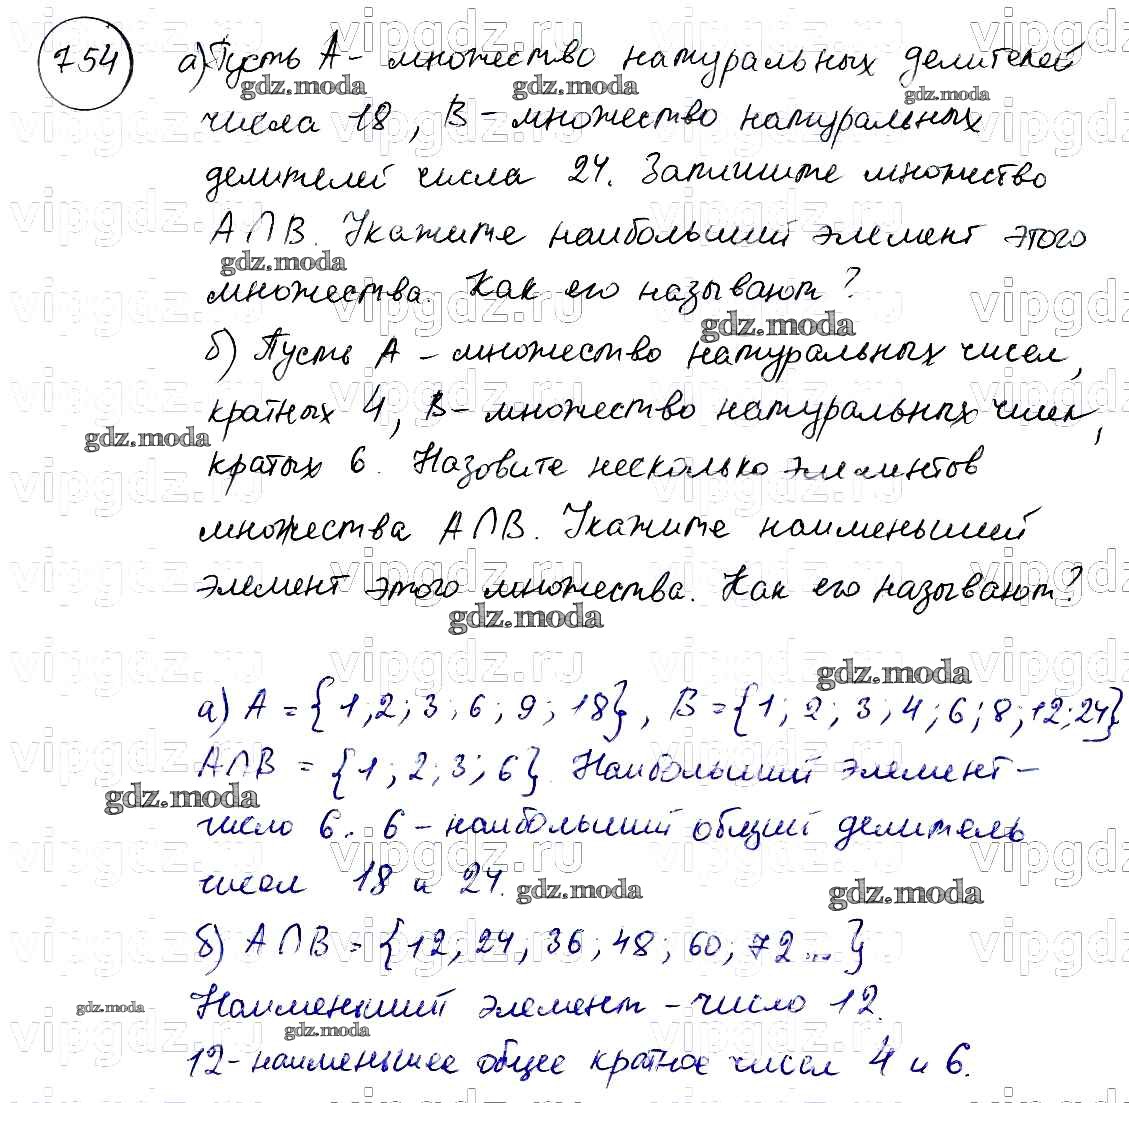 754 а) Пусть А - множество натуральных делителей
числа 18, В - множество натуральных
делителей числа 24. Запишите множество
А∩В. Укажите наибольший элемент этого
множества. Как его называют?
б) Пусть А - множество натуральных чисел,
кратных 4, В - множество натуральных чисел,
кратых 6. Назовите несколько элементов
множества А∩В. Укажите наименьший
элемент этого множества. Как его называют?
а) А = {1; 2; 3; 6; 9; 18}, В = {1; 2; 3; 4; 6; 8; 12; 24}
А∩В = {1; 2; 3; 6}. Наибольший элемент -
число 6. 6 - наибольший общий делитель
чисел 18 и 24.
б) А∩В = {12; 24; 36; 48; 60; 72...}
Наименьший элемент - число 12.
12 - наименьшее общее кратное чисел 4 и 6.
gdz.moda
vipgdz.ru